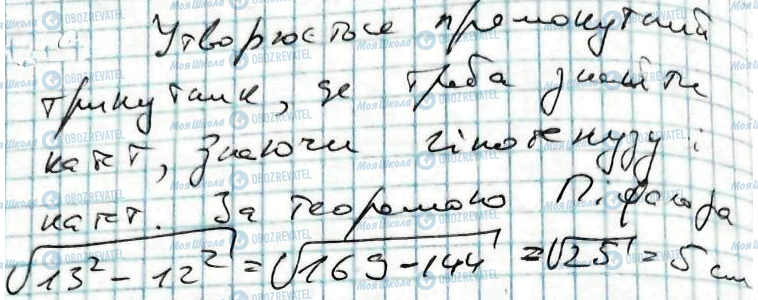 Утворюється прямокутний
трикутник, де треба знайти
катет, знаючи гіпотенузу і
катет. За теоремою Піфагора
√13² - 12² = √169 - 144 = √25 = 5 см